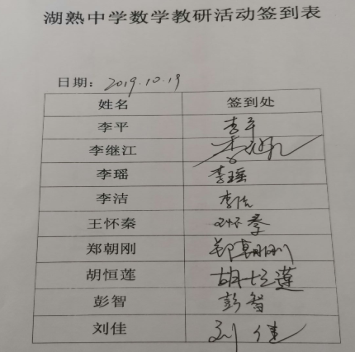 湖熟中学数学教研活动签到表
日期: 2019.10.19
姓名 签到处
李平 李平
李继江 李继江
李瑶 李瑶
李洁 李洁
王怀秦 王怀秦
郑朝刚 郑朝刚
胡恒莲 胡恒莲
彭智 彭智
刘佳 刘佳